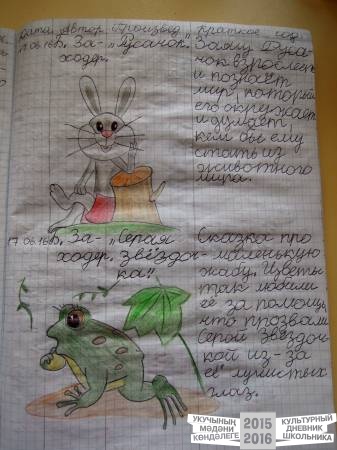 Дата Автор Произвед. Краткое сод.
17.06.16г. Б. За- „Русачок. Заяц Руса-
ходер. чок взрослеет
и познаёт
мир, который
его окружает
и думает,
кем бы ему
стать из
животного
мира.
17.06.16г. Б. За- „Серая Сказка про
ходер. звёздоч- маленькую
ка“ жабу. Цветы
так любили
её за помощь,
что прозвали
Серой Звёздоч
кой из-за
её лучистых
глаз.
УКУЧЫНЫҢ
МӘДӘНИ
КӨНДӘЛЕГЕ
2015
2016
КУЛЬТУРНЫЙ
ДНЕВНИК
ШКОЛЬНИКА